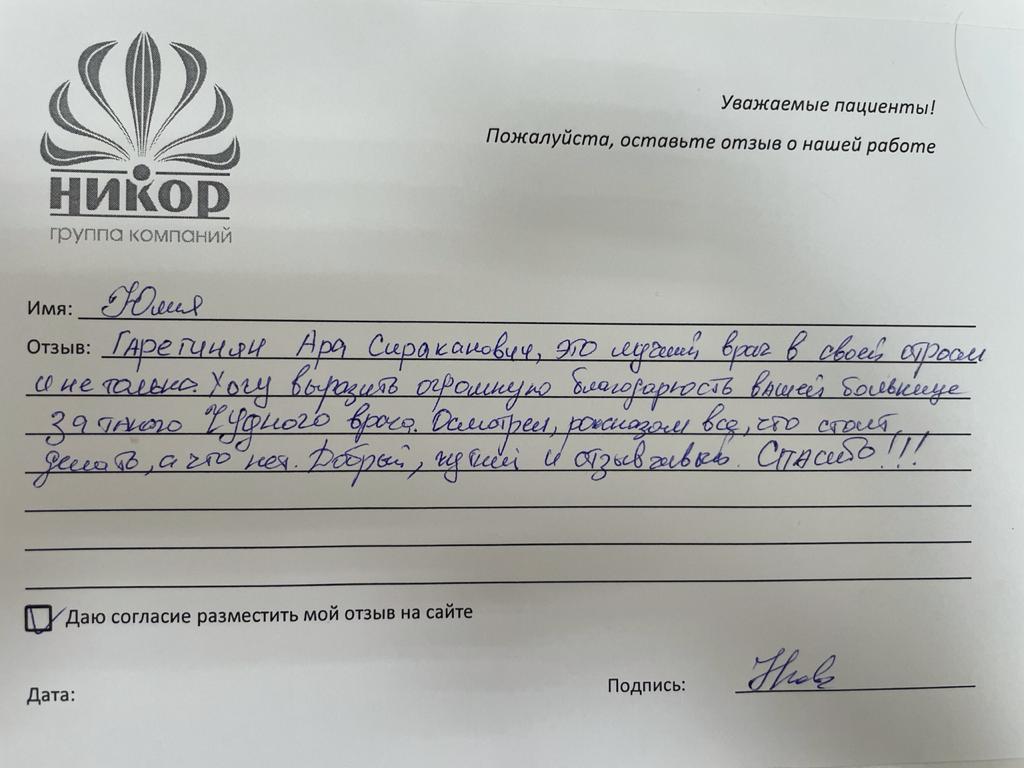 НИКОР
группа компаний
Уважаемые пациенты!
Пожалуйста, оставьте отзыв о нашей работе
Имя: Юлия
Отзыв: Гарегинян Ара Сираканович, это лучший врач в своей отросли
и не только. Хочу выразить огромную благодарность вашей больнице
за такого чудного врача. Осмотрел, рассказал все, что стоит
делать, а что нет. Добрый, чуткий и отзывчивый. Спасибо!!!
Даю согласие разместить мой отзыв на сайте
Дата:
Подпись: